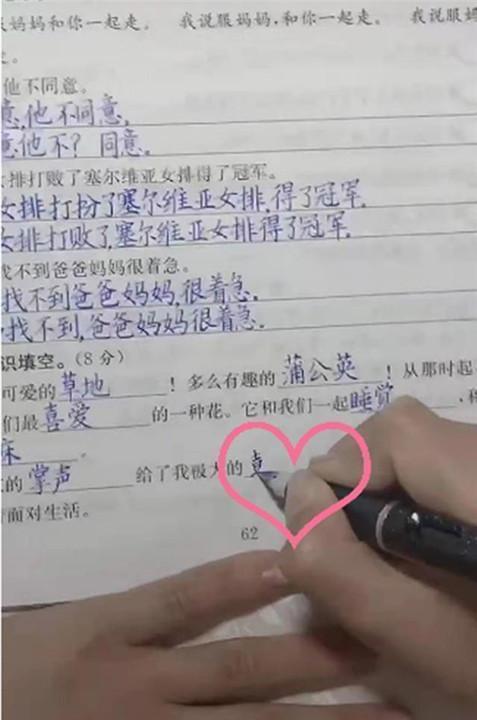 妈妈和你一起走。 我说服妈妈,和你一起走。 我说服妈
他不同意。
意,他不同意。
意,他不?同意。
女排打败了塞尔维亚女排得了冠军。
女排打扮了塞尔维亚女排,得了冠军.
女排打败了,塞尔维亚女排得了冠军.
找不到爸爸妈妈很着急。
找不到爸爸妈妈,很着急.
找不到,爸爸妈妈很着急.
识填空。(8分)
可爱的草地!多么有趣的蒲公英!从那时起
们最喜爱的一种花。它和我们一起睡觉,
床。
的掌声给了我极大的
面对生活。
62